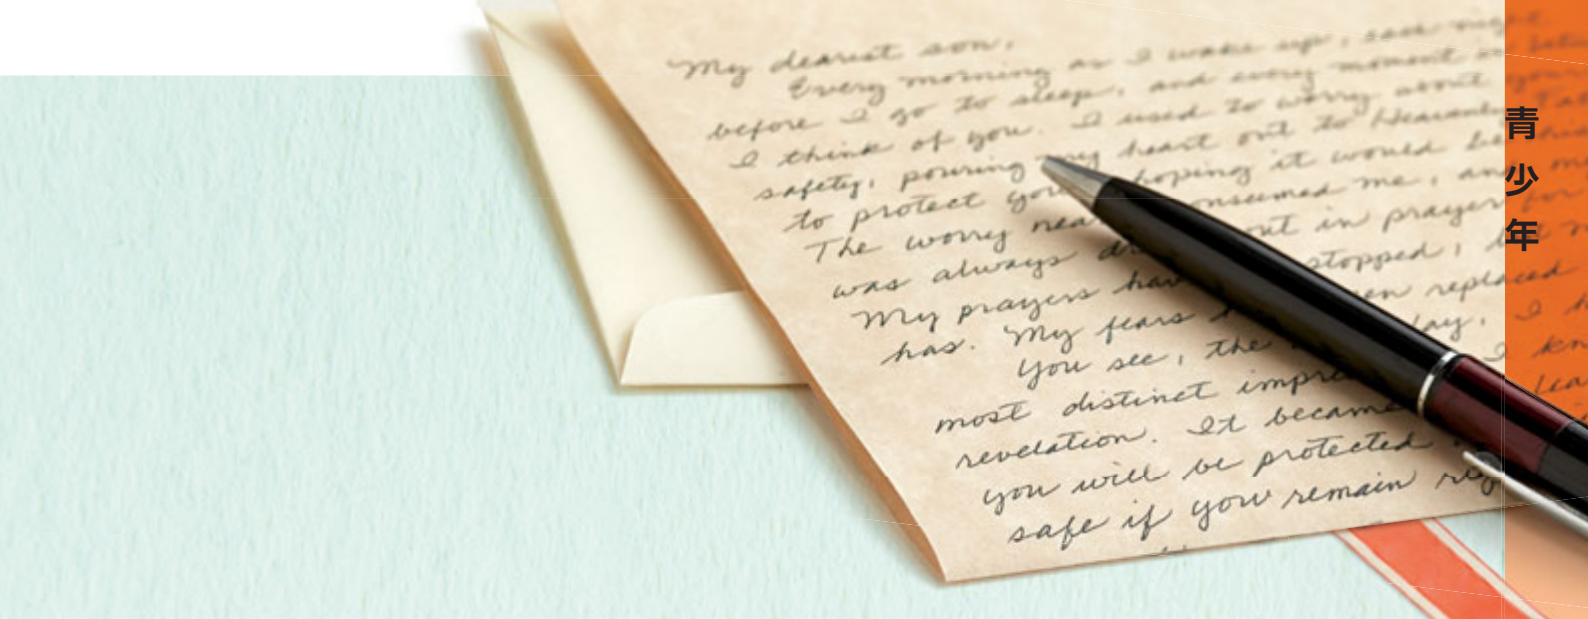 My dearest son,
Every morning as I wake up, each night
before I go to sleep, and every moment in
I think of you. I used to worry about your
safety, pouring my heart out to Heavenly
to protect you hoping it would be
The worry nea consumed me, and
was always out in prayer for
My prayers hav stopped,
has. My fears en replaced
You see, the day. I
most distinct impre
revelation. It became
you will be protected
safe if your remain rig
青
少
年